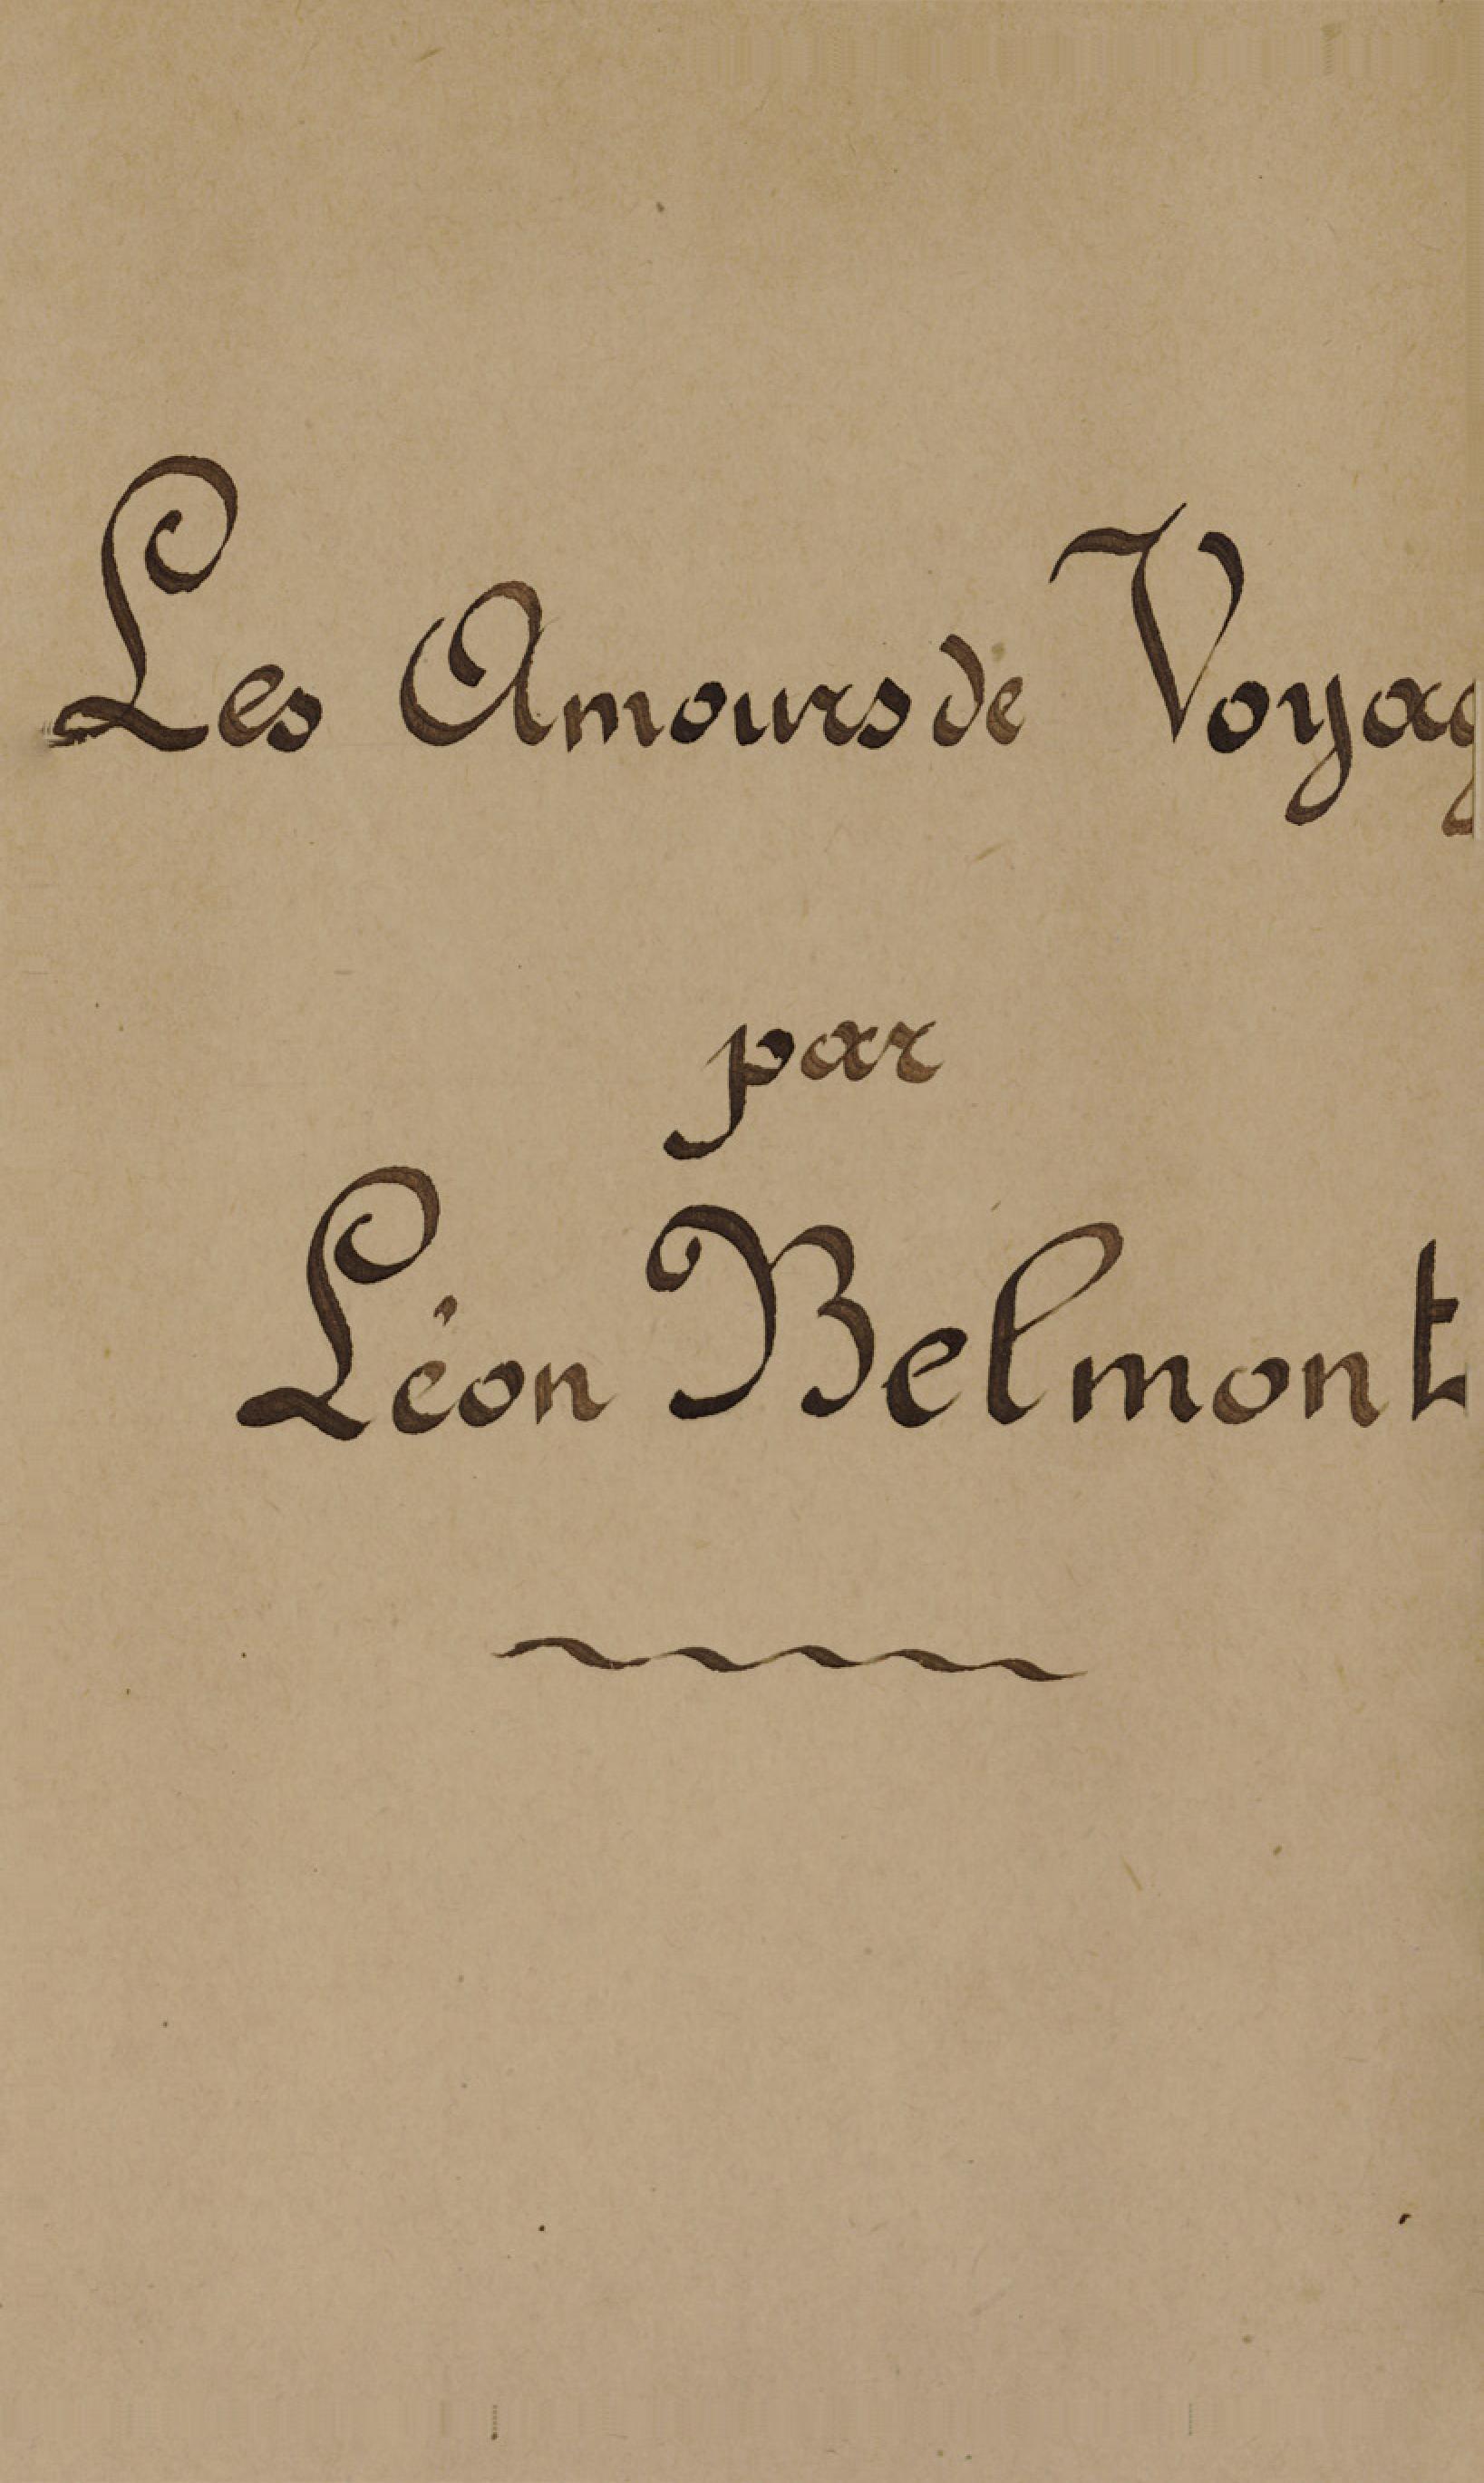 Les Amours de Voyag
par
Léon Belmont